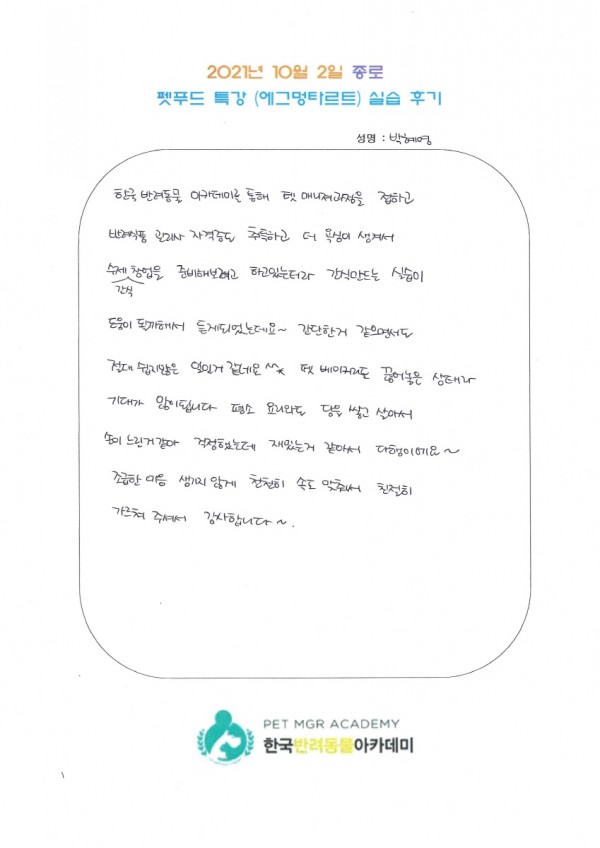 2021년 10월 2일 종로
펫푸드 특강 (에그멍타르트) 실습 후기
성명 : 박혜영
한국 반려동물 아카데미를 통해 펫 매니저과정을 접하고
반려식품 관리사 자격증도 취득하고 더 욕심이 생겨서
수제 창업을 준비해보려고 하고있는터라 간식만드는 실습이
간식
도움이 될까해서 듣게되었는데요~ 간단한거 같으면서도
절대 쉽지않은 일인거 같네요 ^^ 펫 베이커리도 끊어놓은 상태라
기대가 많이됩니다 평소 요리와도 담을 쌓고 살아서
손이 느린거 같아 걱정했는데 재밌는거 같아서 다행이에요~
조급한 마음 생기지 않게 천천히 속도 맞춰서 친절히
가르쳐 주셔서 감사합니다~.
PET MGR ACADEMY
한국반려동물아카데미